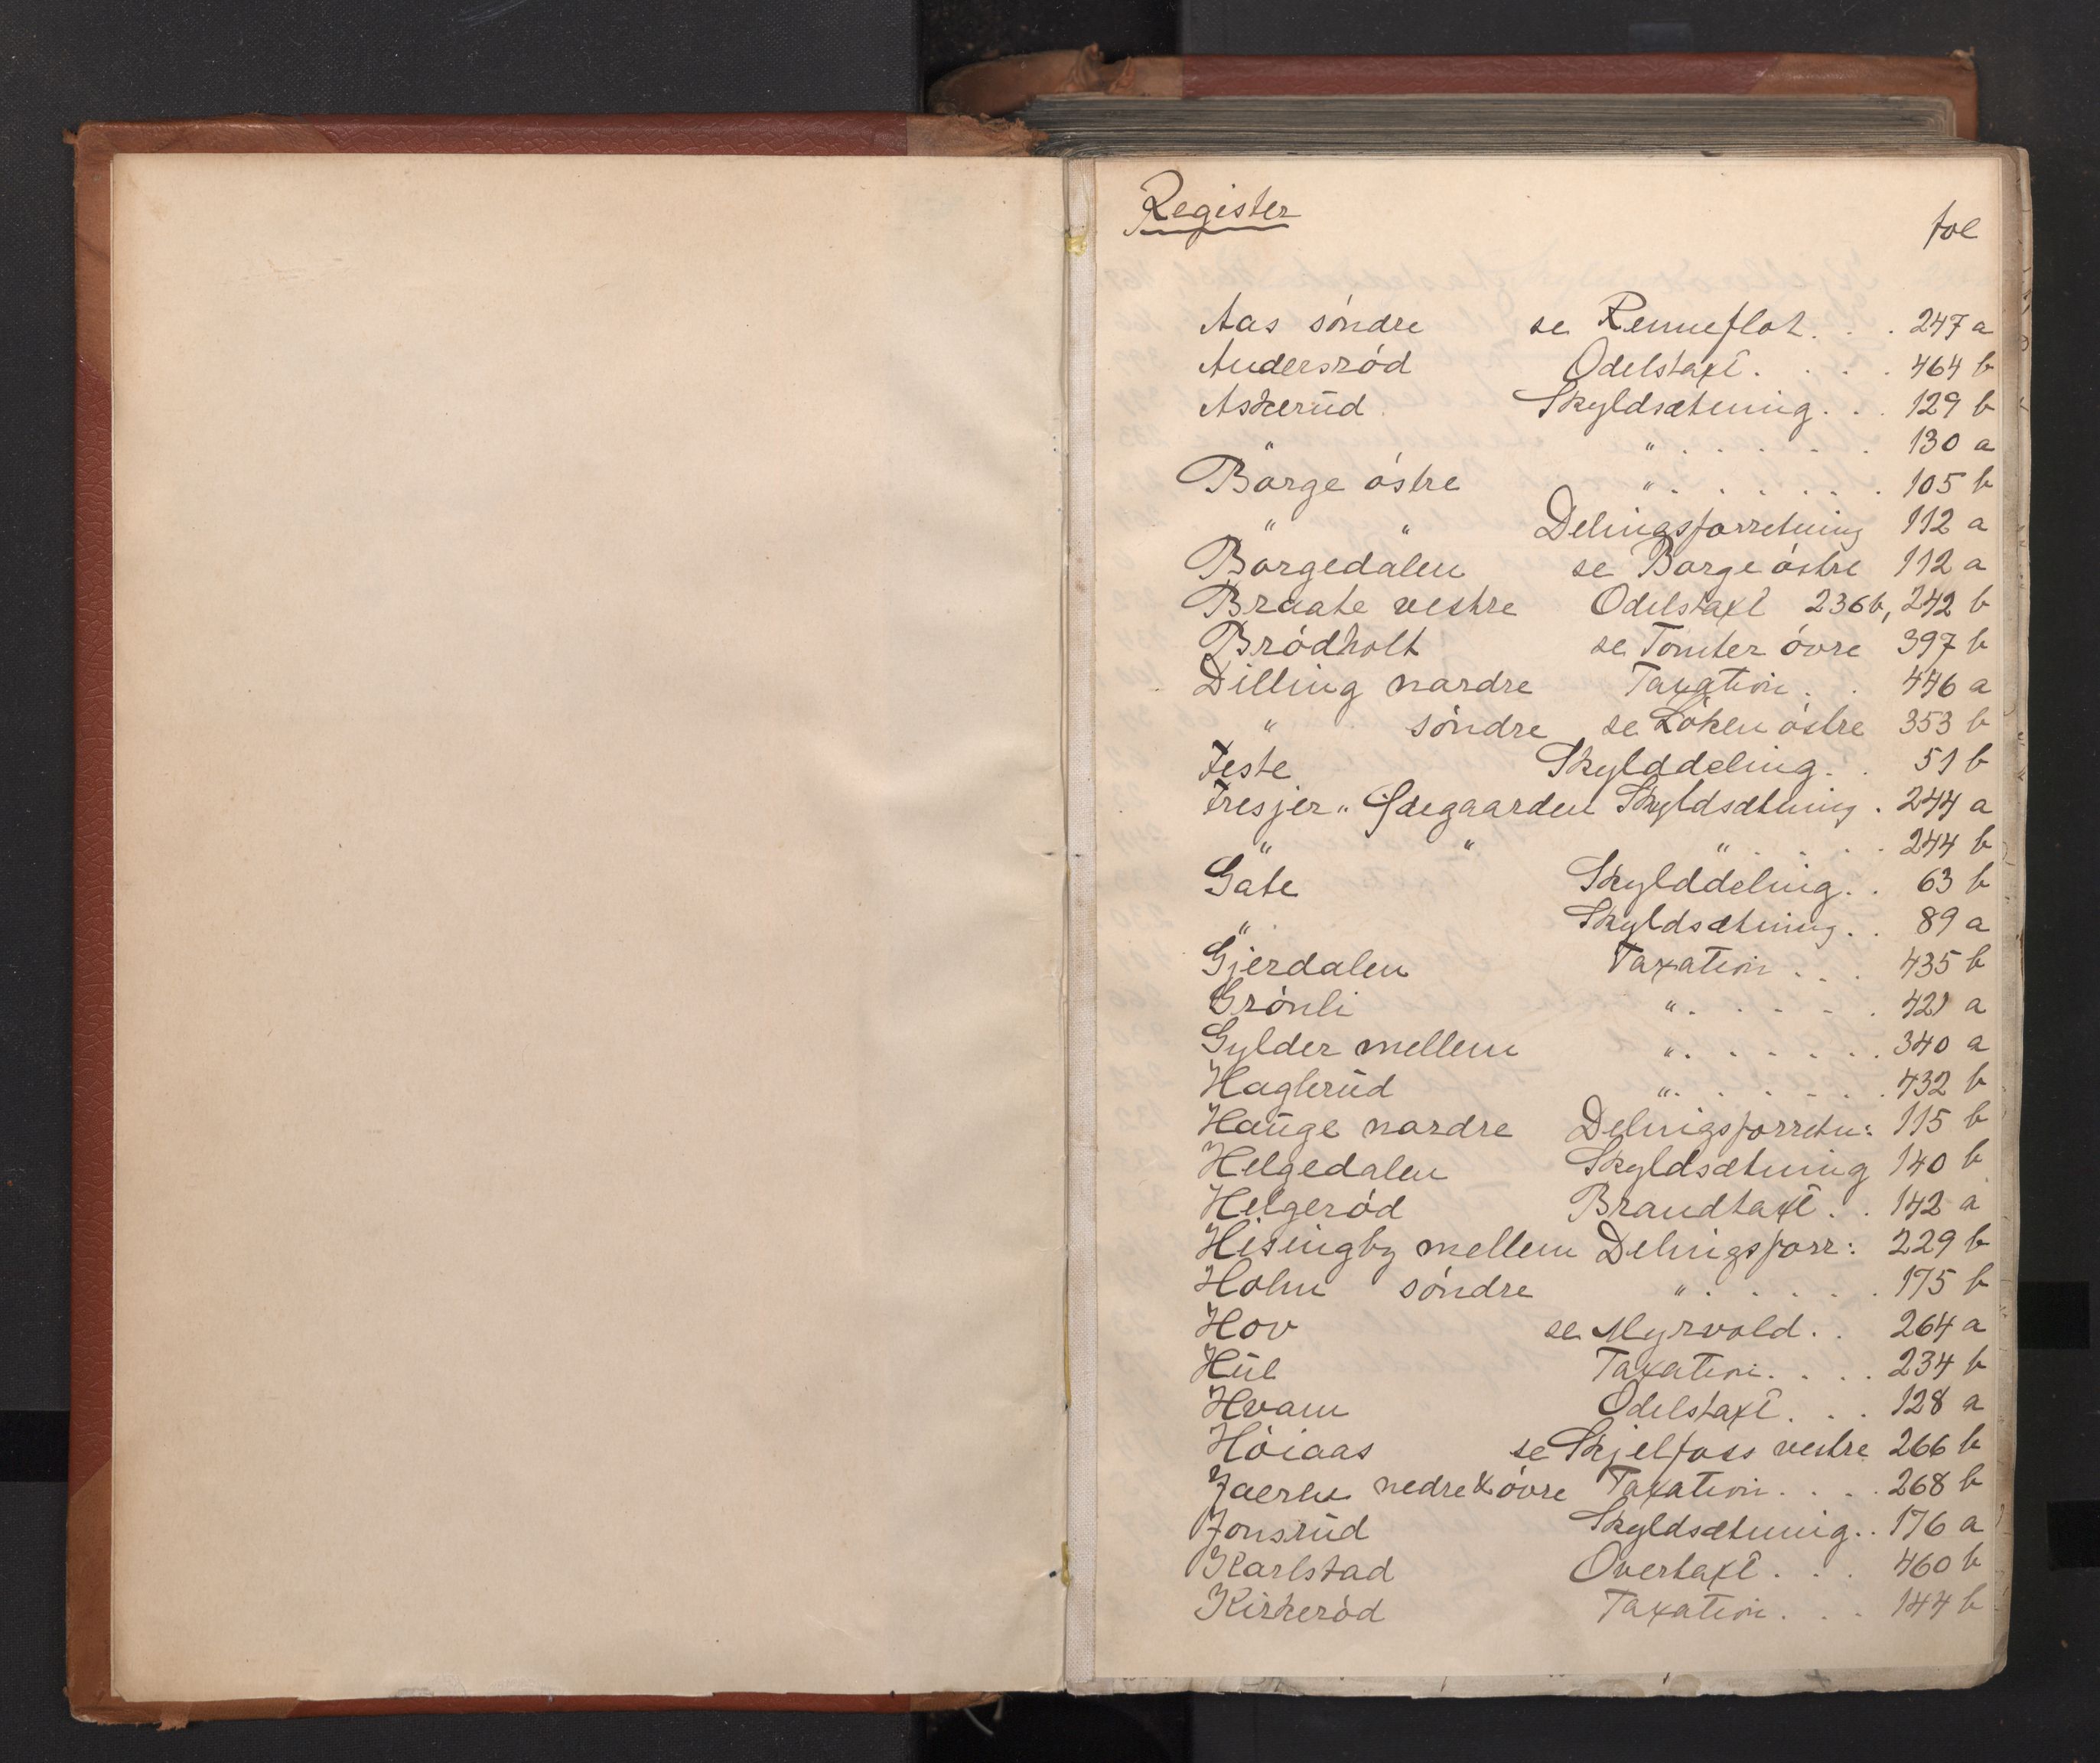 Register
fol
Aas söndre se Renneflot . . 247 a
Andersröd Odelstaxt . . . . 464 b
Askerud Skyldsætning . . . 129 b
" " . . . . . . 130 a
Borge östre " . . . . . . 105 b
" " Delingsforretning 112 a
Borgedalen se Borge östre 112 a
Braate vestre Odelstaxt 236 b, 242 b
Brödholt se Tomter övre 397 b
Dilling nordre Taxation . . 446 a
" söndre se Löken östre 353 b
Feste Skylddeling . . 51 b
Fresjer " Ødegaarden Skyldsætning . 244 a
" " " . . . . . 244 b
Gate Skylddeling . . 63 b
" Skyldsætning . . 89 a
Gjerdalen Taxation . . . 435 b
Grönli " . . . . . . 421 a
Gylder mellem " . . . . . . 340 a
Haglerud " . . . . . . 432 b
Hauge nordre Delingsforretn: 115 b
Helgedalen Skyldsætning 140 b
Helgeröd Brandtaxt . . 142 a
Hisingby mellem Delingsforr: 229 b
Holm söndre " . . . . . . 175 b
Hov se Myrvold . . 264 a
Hul Taxation . . . . 234 b
Hvam Odelstaxt . . . 128 a
Höiaas se Skjelfoss vestre 266 b
Jaeren nedre & övre Taxation . . . . 268 b
Jonsrud Skyldsætning . . 176 a
Karlstad Overtaxt . . . 460 b
Kirkeröd Taxation . . . 144 b